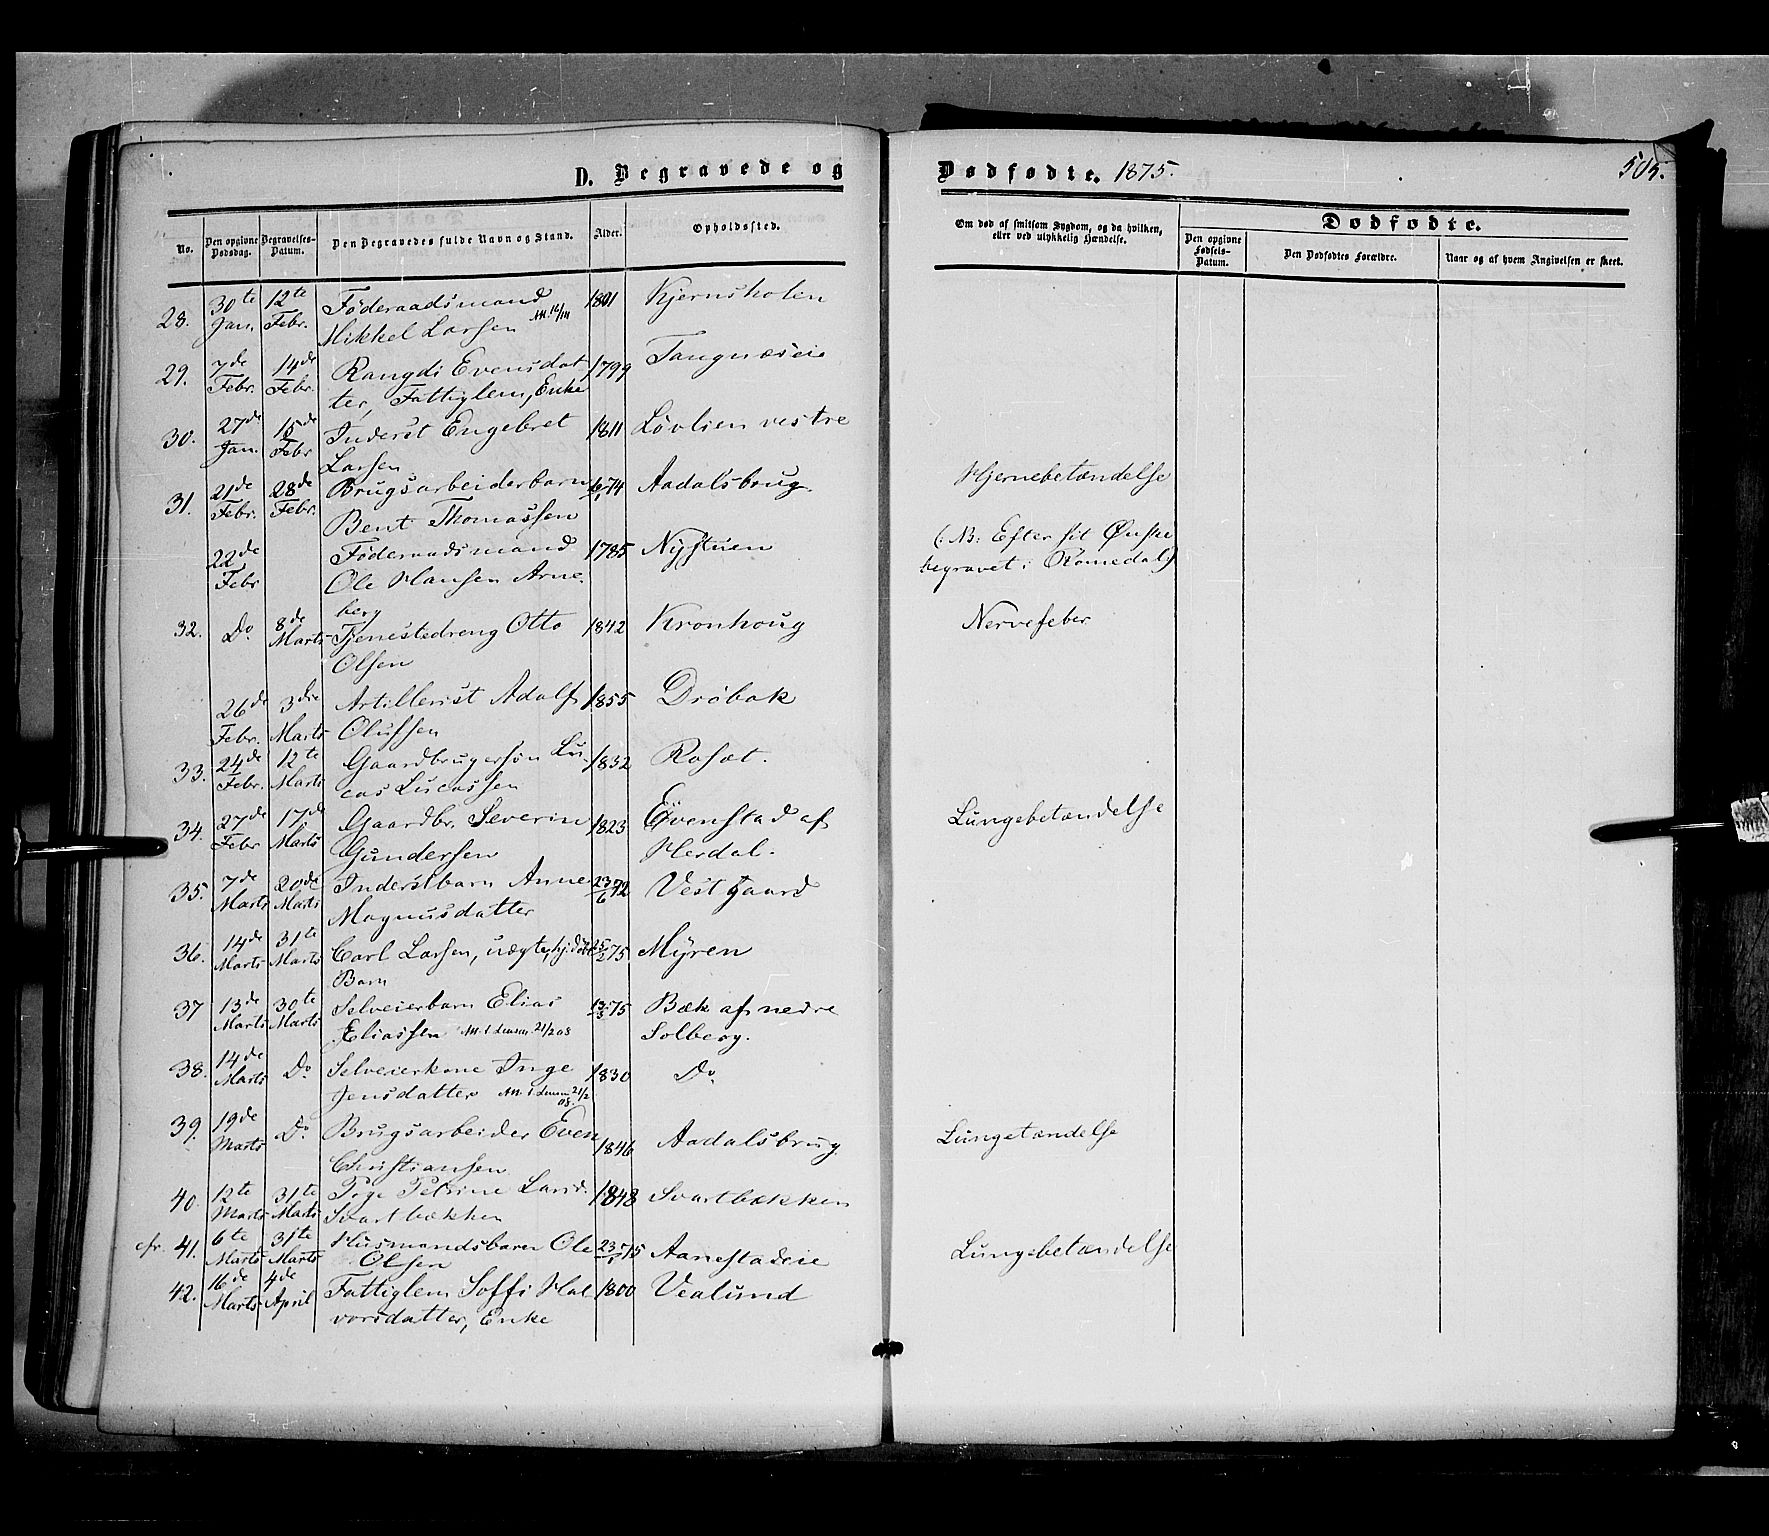 D. Begravede og
Dødfødte. 1875.
505.
No.
Den opgivne Dødsdag.
Begravelses-Datum.
Den Begravedes fulde Navn og Stand.
Alder.
Opholdssted.
Om død af smitsom Sygdom, og da hvilken, eller ved ulykkelig Hændelse.
Dødfødte.
Den opgivne Fødsels-Datum.
Den Dødfødtes Forældre.
Naar og af hvem Angivelsen er skeet.
28. 30te Jan. 12te Febr. Föderaadsmand 1801 Kjernsholen
Mikkel Larsen
29. 7de Febr. 14de Febr. Rangdi Evensdat 1799 Tangnæseie
ter, Fattiglem, Enke
30. 27de Jan. 15de Febr Inderst Engebret 1811 Lövlien vestre
Larsen
31. 21de Febr. 28de Febr. Brugsarbeiderbarn 74 Aadalsbrug. Hjernebetændelse
Bent Thomassen
22de Febr Föderaadsmand 1785 Nystuen (: NB: Efter sit Ønske
Ole Hansen Arne- begravet i Romedal:)
berg
32. Do 8de Marts Tjenestedreng Otto 1842 Kronhoug Nervefeber
Olsen
26de Febr. 3die Marts Artillerist Adolf 1855 Dröbak
Olufsen
33. 24de Febr. 12te Marts Gaardbrugersøn Lu- 1832 Rosæt.
cas Lucassen
34. 27de Febr 17de Marts Gaardbr. Severin 1823 Evenstad af Lungebetændelse
Gundersen Herdal.
35. 7de Marts 20de Marts Inderstbarn Anne 23/6 72 Vestgaard
Magnusdatter
36. 14de Marts 31te Marts Carl Larsen, uægte, hj.døbt 25/2 75 Myren
Barn
37 13de Marts 30te Marts Selveierbarn Elias 13/3 75 Bæk af nedre
Eliassen 21/2 08 Solberg.
38. 14de Marts Do Selveierkone Inge 1830 Do
Jensdatter 21/2 08.
39. 19de Marts Do Brugsarbeider Even 1846 Aadalsbrug Lungetændelse
Christiansen
40. 12te Marts 31te Marts Pige Petrine Larsd. 1848 Svartbækken
Svartbækken
cfr. 41. 6te Marts 31te Marts Husmandsbarn Ole 75 Aanestadeie Lungebetændelse
Olsen
42. 16de Marts 4de April Fattiglem Soffi Hal 1800 Vealund
vorsdatter, Enke